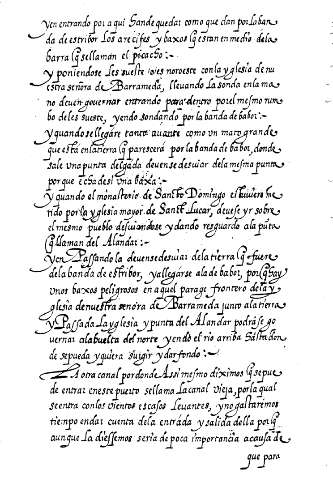 yen entrando por aqui han de quedar como que dan por la ban
da de estribor Los arecifes y baxos q̃ estan en medio de la
barra q̃ se llaman el picacho:~
y poniendose Les sueste noroeste con la yglesia de nu
estra señora de Barrameda, llevando La sonda en la ma
no deven governar entrando para dentro por el mesmo rum
bo de les sueste, yendo sondando por la banda de babor:~
y quando se llegare tanto avante como un maro grande
que esta en la tierra q̃ parescera por la banda de babor, donde
sale una punta delgada devense desviar de la mesma punta
por que echa de si una baxa:~
y quando el monasterio de Sancto Domingo el tuviere me
tido por la yglesia mayor de Sant Lucar, devese yr sobre
el mesmo pueblo desviandose y dando resguardo a la pūta
q̃ llaman del Alandar:~
y en Passandola devense desviar de la tierra q̃ fuere
de la banda de estribor, y allegarse a la de babor, porq̃ hay
unos baxos peligrosos en aquel parage frontero de la y
glesia de nuestra senora de Barrameda junto a la tierra
y Passada La yglesia y punta del Alandar podrase go
vernar a la buelta del norte yendo el rio arriba hasta don
de se pueda y quiera surgir y dar fondo:~
La otra canal por donde Assi mesmo diximos q̃ se pue
de entrar en este puerto se llama La canal vieja, por la qual
se entra con los vientos escasos Levantes, y no gastaremos
tiempo en dar cuenta de la entrada y salida della por q̃
aunque La diessemos seria de poca importancia a causa de
que para